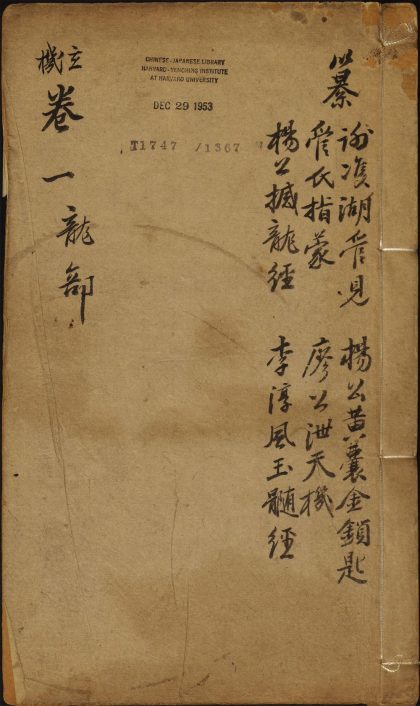 纂
謝雙湖管見
楊公黄囊金鎖匙
管氏指蒙
廖公泄天機
楊公撼龍經
李淳風玉髓經
CHINESE-JAPANESE LIBRARY
HARVARD-YENCHING INSTITUTE
AT HARVARD UNIVERSITY
DEC 29 1953
T1747 /1367
立機
卷一 龍部